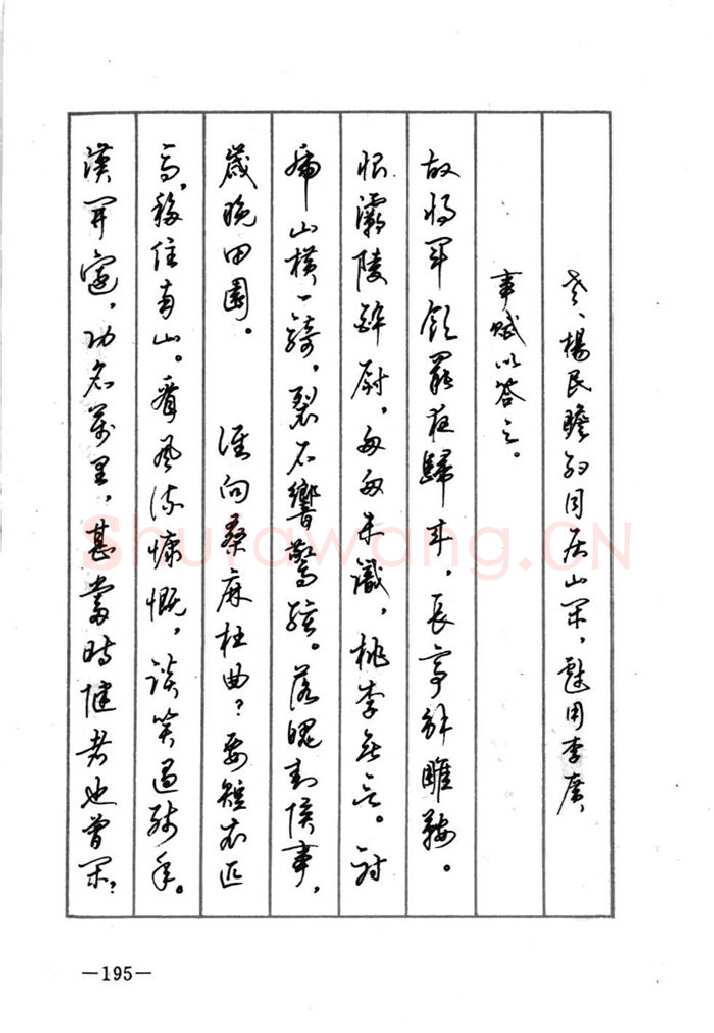 老、楊民瞻約同居山閒，戲用李廣
事賦以答之。
故將軍飲罷夜歸來，長亭解雕鞍。
恨灞陵醉尉，匆匆未識，桃李無言。射
虎山横一騎，裂石響驚弦。落魄封侯事，
歲晚田園。　誰向桑麻杜曲？要短衣匹
馬，移住南山。看風流慷慨，談笑過殘年。
漢開邊，功名萬里，甚當時健者也曾閑？
—195—
Shufawang.CN